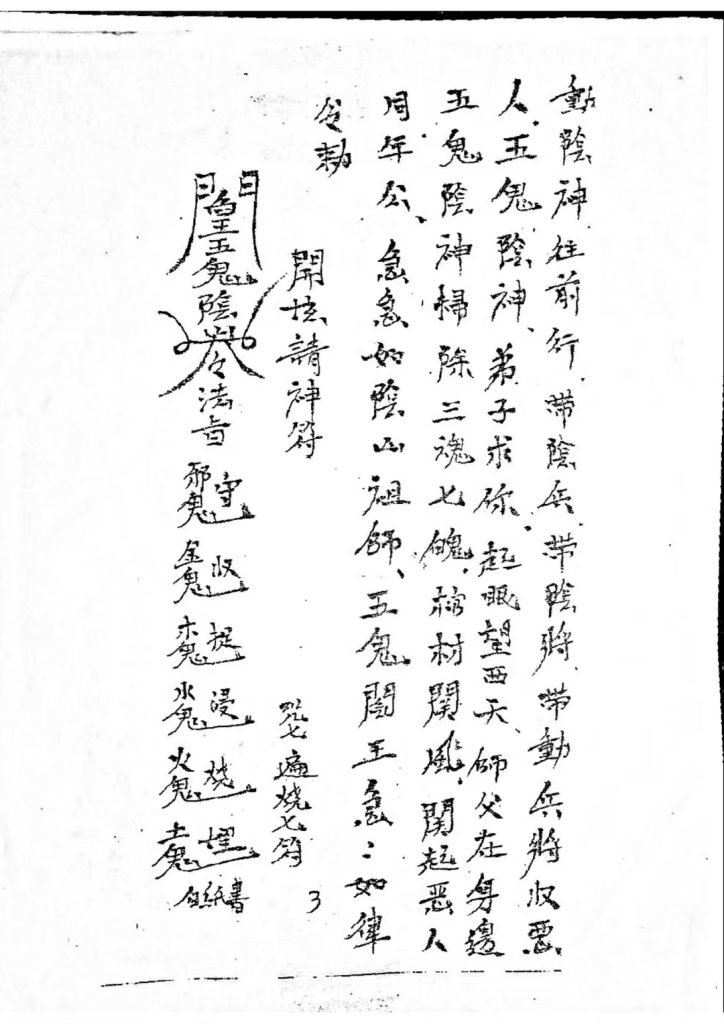 動陰神往前行、帶陰兵、帶陰將、帶動兵將收惡
人、五鬼陰神、弟子求你、起眼望西天、師父在身邊
五鬼陰神掃除三魂七魄、棺材関風、関起惡人
周年公、急急如陰山祖師、五鬼閻王急〻如律
令勅
開坛請神符
咒七遍烧七符
3
五鬼陰
法旨
邪鬼守
金鬼收
木鬼捉
水鬼浸
火鬼烧
土鬼埋
白紙書